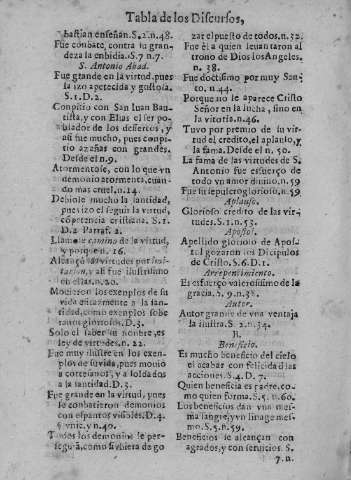 Tabla de los Discursos,
bastian enseñan. S. 2. n. 48.
Fue cõbate, contra tu gran-
deza la enbidia. S. 7 n. 7.
S. Antonio Abad.
Fue grande en la virtud, pues
la izo apetecida y gustosa.
S. 1. D. 2.
Conpitio con San Iuan Bau-
tista, y con Elias el ser po-
blador de los desiertos, y
asi fue mucho, pues conpi-
tio azañas con grandes.
Desde el n. 9.
Atormentose, con lo que vn
demonio atormenta, cuan-
do mas cruel, n. 14.
Debiole mucho la santidad,
pues izo el seguir la virtud,
cõpetencia cristiana. S. 1.
D. 2 Parraf. 2.
Llamose camino de la virtud,
y porque n. 16.
Alcançò las virtudes por imi-
tacion, y asi fue ilustrisimo
en ellas. n. 20.
Mouieron los exenplos de su
vida eficazmente a la san-
tidad, como exenplos sobe
ranos gloriosos. D. 3.
Solo el saber su nonbre, es
ley de virtudes. n. 22.
Fue muy ilustre en los exen-
plos de su vida, pues mouiò
a cortesanos, y a soldados
a la santidad. D. 3.
Fue grande en la virtud, pues
se conbatieron demonios
con espantos visibles. D. 4.
§ vnic. y n. 40.
Todos los demonios le per-
seguiã, como si vbiera de go
zar el puesto de todos. n. 32.
Fue èl a quien leuantaron al
trono de Dios los Angeles.
n. 38.
Fue doctisimo por muy San-
to. n. 44.
Porque no le aparece Cristo
Señor en la lucha, sino en
la vitoria. n. 46.
Tuvo por premio de su vir-
tud el credito, el aplauso, y
la fama. Desde el n. 50.
La fama de las virtudes de S.
Antonio fue esfuerço de
todo vn amor diuino. n. 59
Fue su sepulcro glorioso. n. 59
Aplauso.
Glorioso credito de las vir-
tudes. S. 1. n. 53.
Apostol.
Apellido glorioso de Apos-
tol gozaron los Dicipulos
de Cristo. S. 6. D. 1.
Arrepentimiento.
Es esfuerço valerosisimo de la
gracia. S. 9. n. 38.
Autor.
Autor grande de vna ventaja
la infiera. S. 2. n. 34.
B.
Beneficio.
Es mucho beneficio del cielo
el acabar con felicidad las
acciones. S. 4. D. 7.
Quien beneficia es padre, co-
mo quien forma. S. 5. n. 60.
Los beneficios dan vna mes-
ma sangre, y vn linage mes-
mo. S. 5. n. 59.
Beneficios se alcançan con
agrados, y con seruicios. S.
7. n.